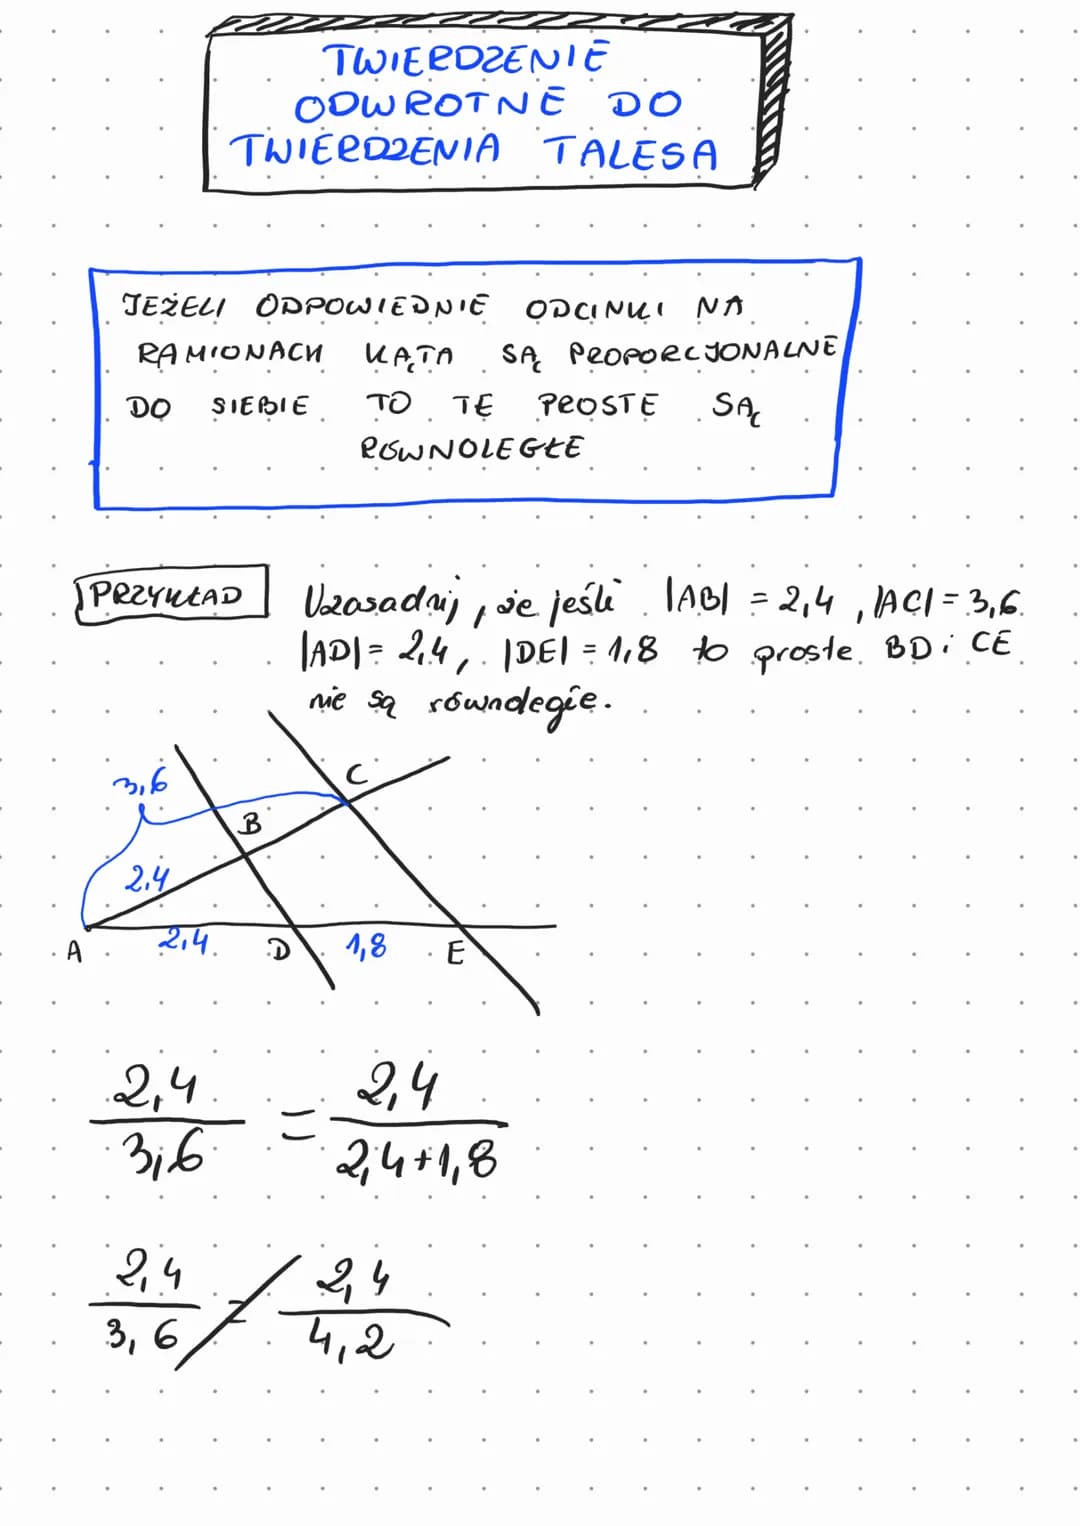 TWIERDZENIE
ODWROTNE DO
TWIERDZENIA TALESA
JEŻELI ODPOWIEDNIE ODCINKI NA
RAMIONACH KĄTA SĄ PROPORCJONALNE
DO SIEBIE TO TE PROSTE SĄ
RÓWNOLEGŁE
PRZYKŁAD
Uzasadnij, że jeśli |AB| = 2,4, |AC| = 3,6
|AD| = 2,4, |DE| = 1,8 to proste BD i CE
nie są równoległe.
3,6
C
B
2,4
A
2,4
D
1,8
E
2,4/3,6 = 2,4/2,4+1,8
2,4/3,6 ≠ 2,4/4,2